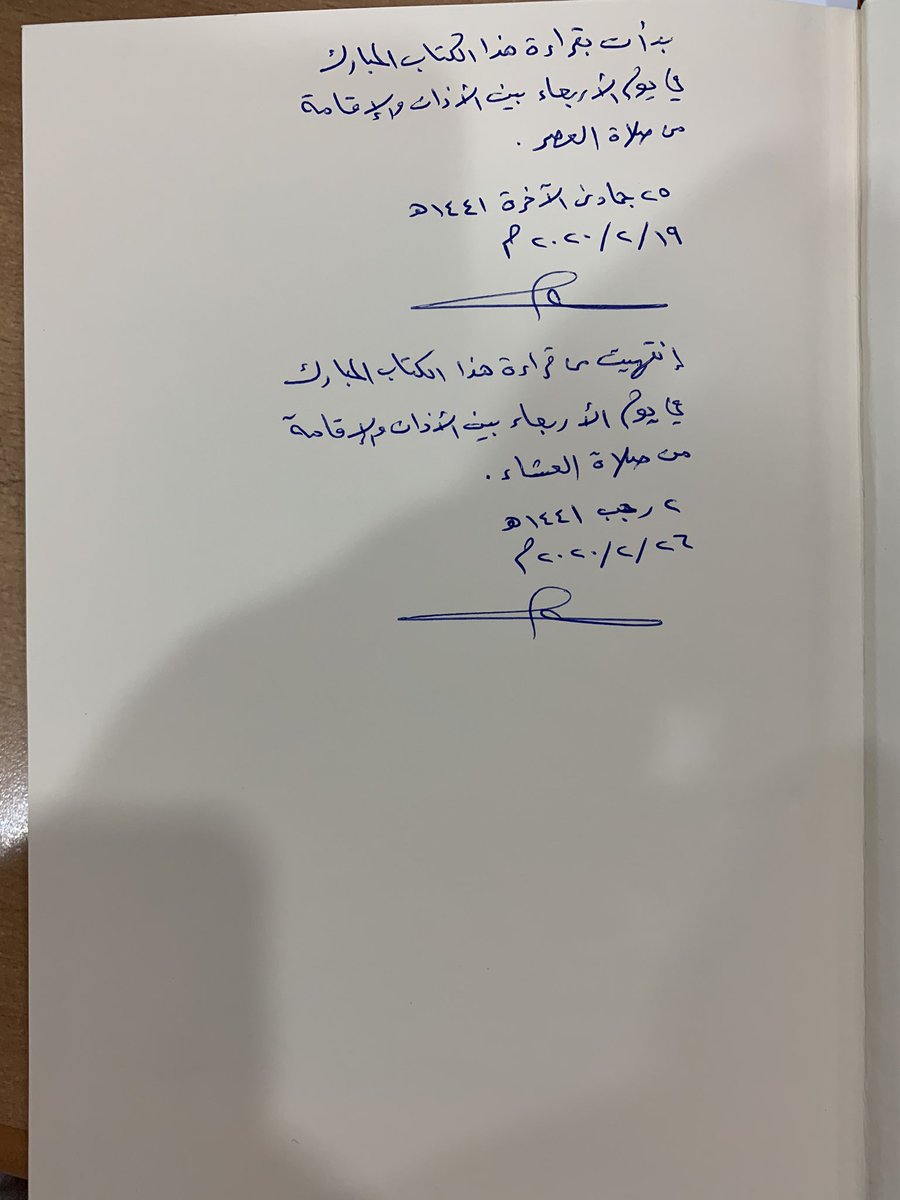 بدأت بقراءة هذا الكتاب المبارك
في يوم الأربعاء بين الأذان والإقامة
من صلاة العصر .
٢٥ جمادى الآخرة ١٤٤١هـ
٢٠٢٠/٢/١٩ م
إنتهيت من قراءة هذا الكتاب المبارك
في يوم الأربعاء بين الأذان والإقامة
من صلاة العشاء .
٢ رجب ١٤٤١هـ
٢٠٢٠/٢/٢٦ م